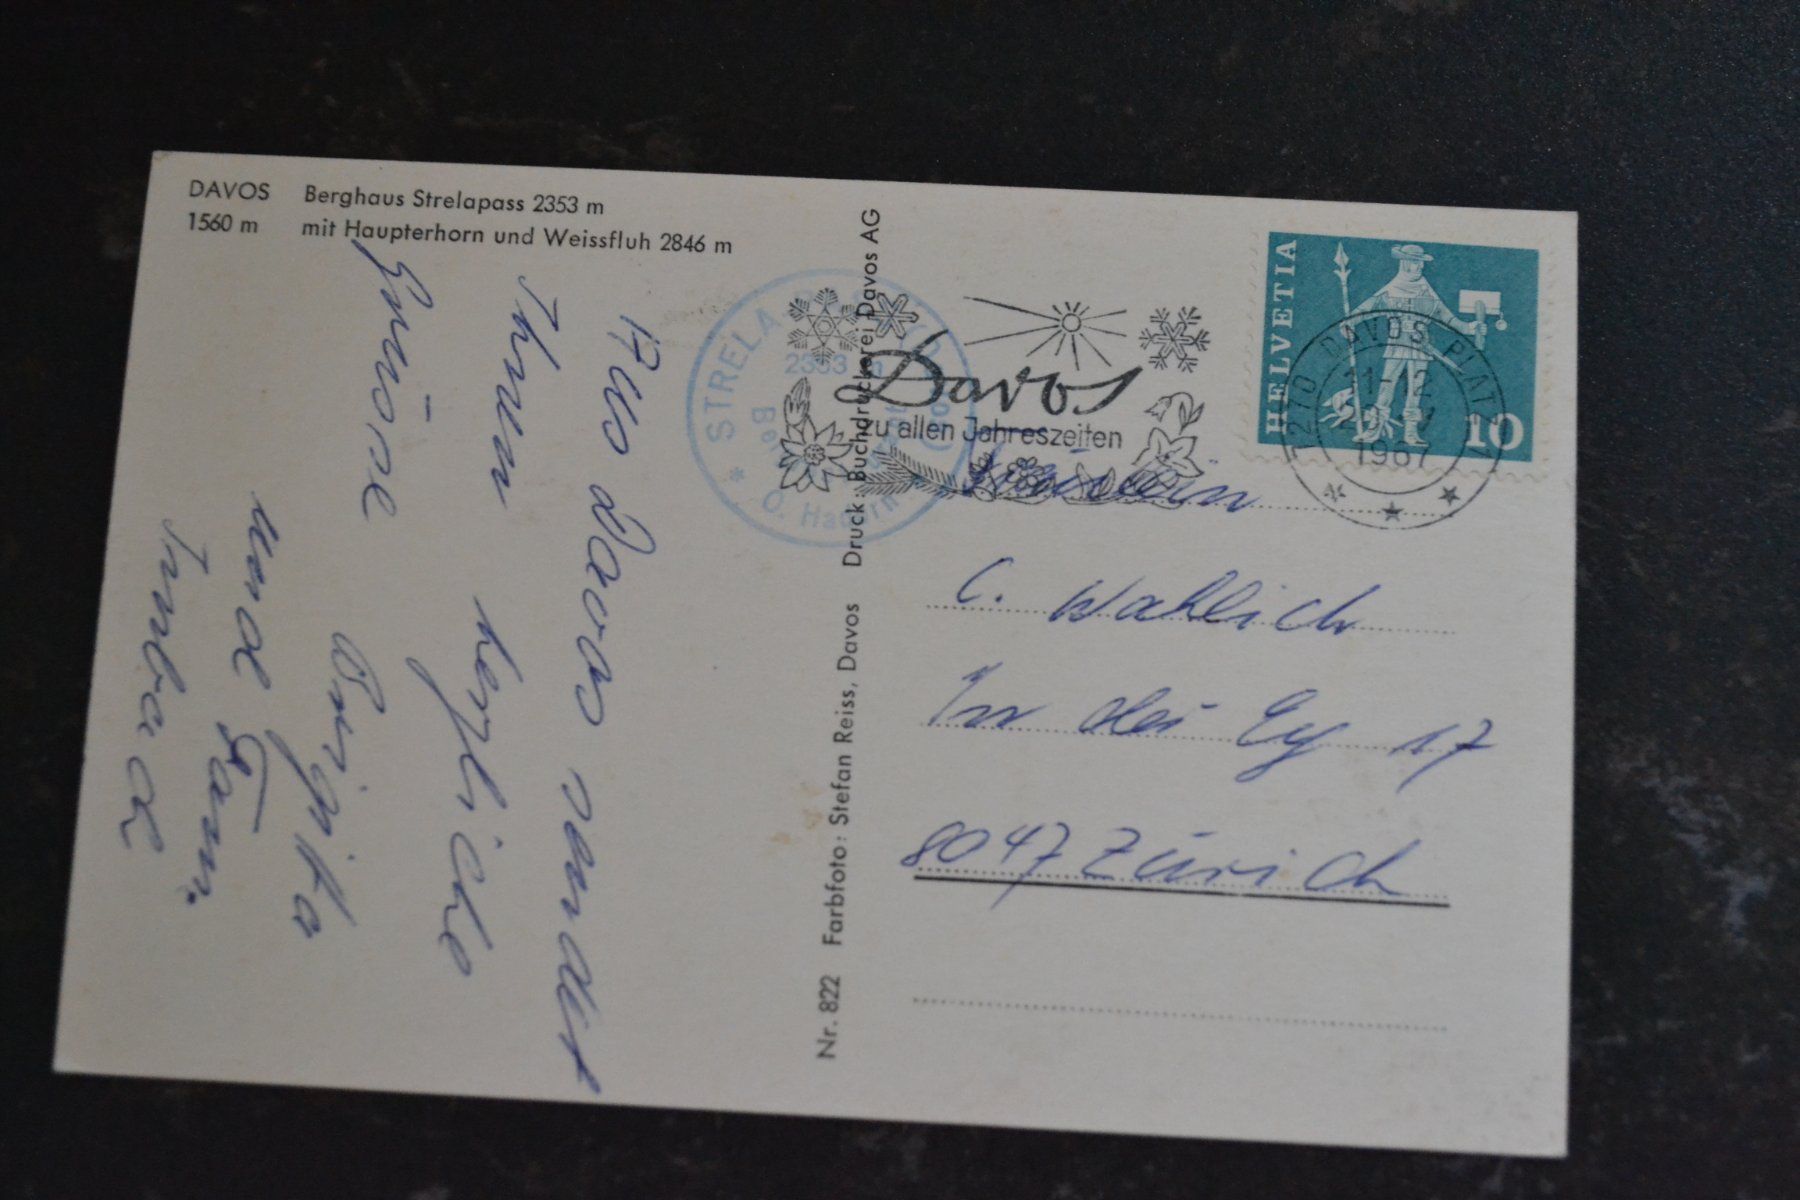 DAVOS Berghaus Strelapass 2353 m
1560 m mit Haupterhorn und Weissfluh 2846 m
Aus Davos sendet
Ihnen herzliche
Grüsse
Brigitta
und Fam.
Imbach
Nr. 822 Farbfoto: Stefan Reiss, Davos Druck: Buchdruckerei Davos AG
STRELA
2353 m
Davos
zu allen Jahreszeiten
HELVETIA
10
7210 DAVOS PLATZ 1
11-12
1967
Fräulein
C. Wahlich
In der Ey 17
8047 Zürich